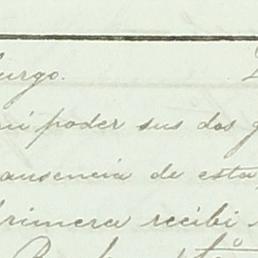 urgo.
mi poder sus dos g
ausencia de esta
primera recibi